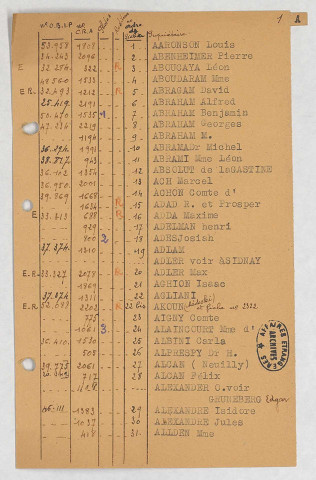 1 A
N° O.B.I.P n° C.R.A n° ordre de
53.958 1908 1 AARONSON Louis
34.243 2098 2 ABENHEIMER Pierre
E 32.254 322 R 3 ABOUCAYA Léon
48.560 1533 4 ABOUDARAM Mme
E.R. 32.493 1212 R 5 ABRAGAM David
25.419 2191 6 ABRAHAM Alfred
50.470 1535 1 7 ABRAHAM Benjamin
47.236 2219 8 ABRAHAM Georges
1194 9 ABRAHAM M.
36.394 1991 10 ABRAMADr Michel
38.717 943 11 ABRAMI Mme Léon
36.102 1354 12 ABSOLUT de LaGASTINE
36.950 2001 13 ACH Marcel
39.869 1668 14 ACHON Comte d'
1634 R 15 ADAD R. et Prosper
E 33.213 688 R 16 ADDA Maxime
929 17 ADELMAN henri
800 2 18 ADESJosiah
37.374 1310 19 ADLAM
ADLER voir &SIDNAY
E.R. 33.327 2078 R 20 ADLER Max
1869 21 AGHION Isaac
37.874 1311 22 AGLIANI
E.R. 52.687 2203 22 bis AKOUN et n° 2322
735 23 AIGNY Comte
1661 3 24 ALAINCOURT Mme d'
36.410 1530 25 ALBINI Carla
508 26 ALPRESPY Dr H.
39.775 2061 27 ALGAN ( Neuilly)
717 28 ALGAN Félix
ALEXANDER O.voir
GRUDEBERG Edgar
1383 29 ALEXANDRE Isidore
1037 30 ALEXANDRE Jules
418 31 ALLDEN Mme
AFFAIRES ETRANGERES
ARCHIVES